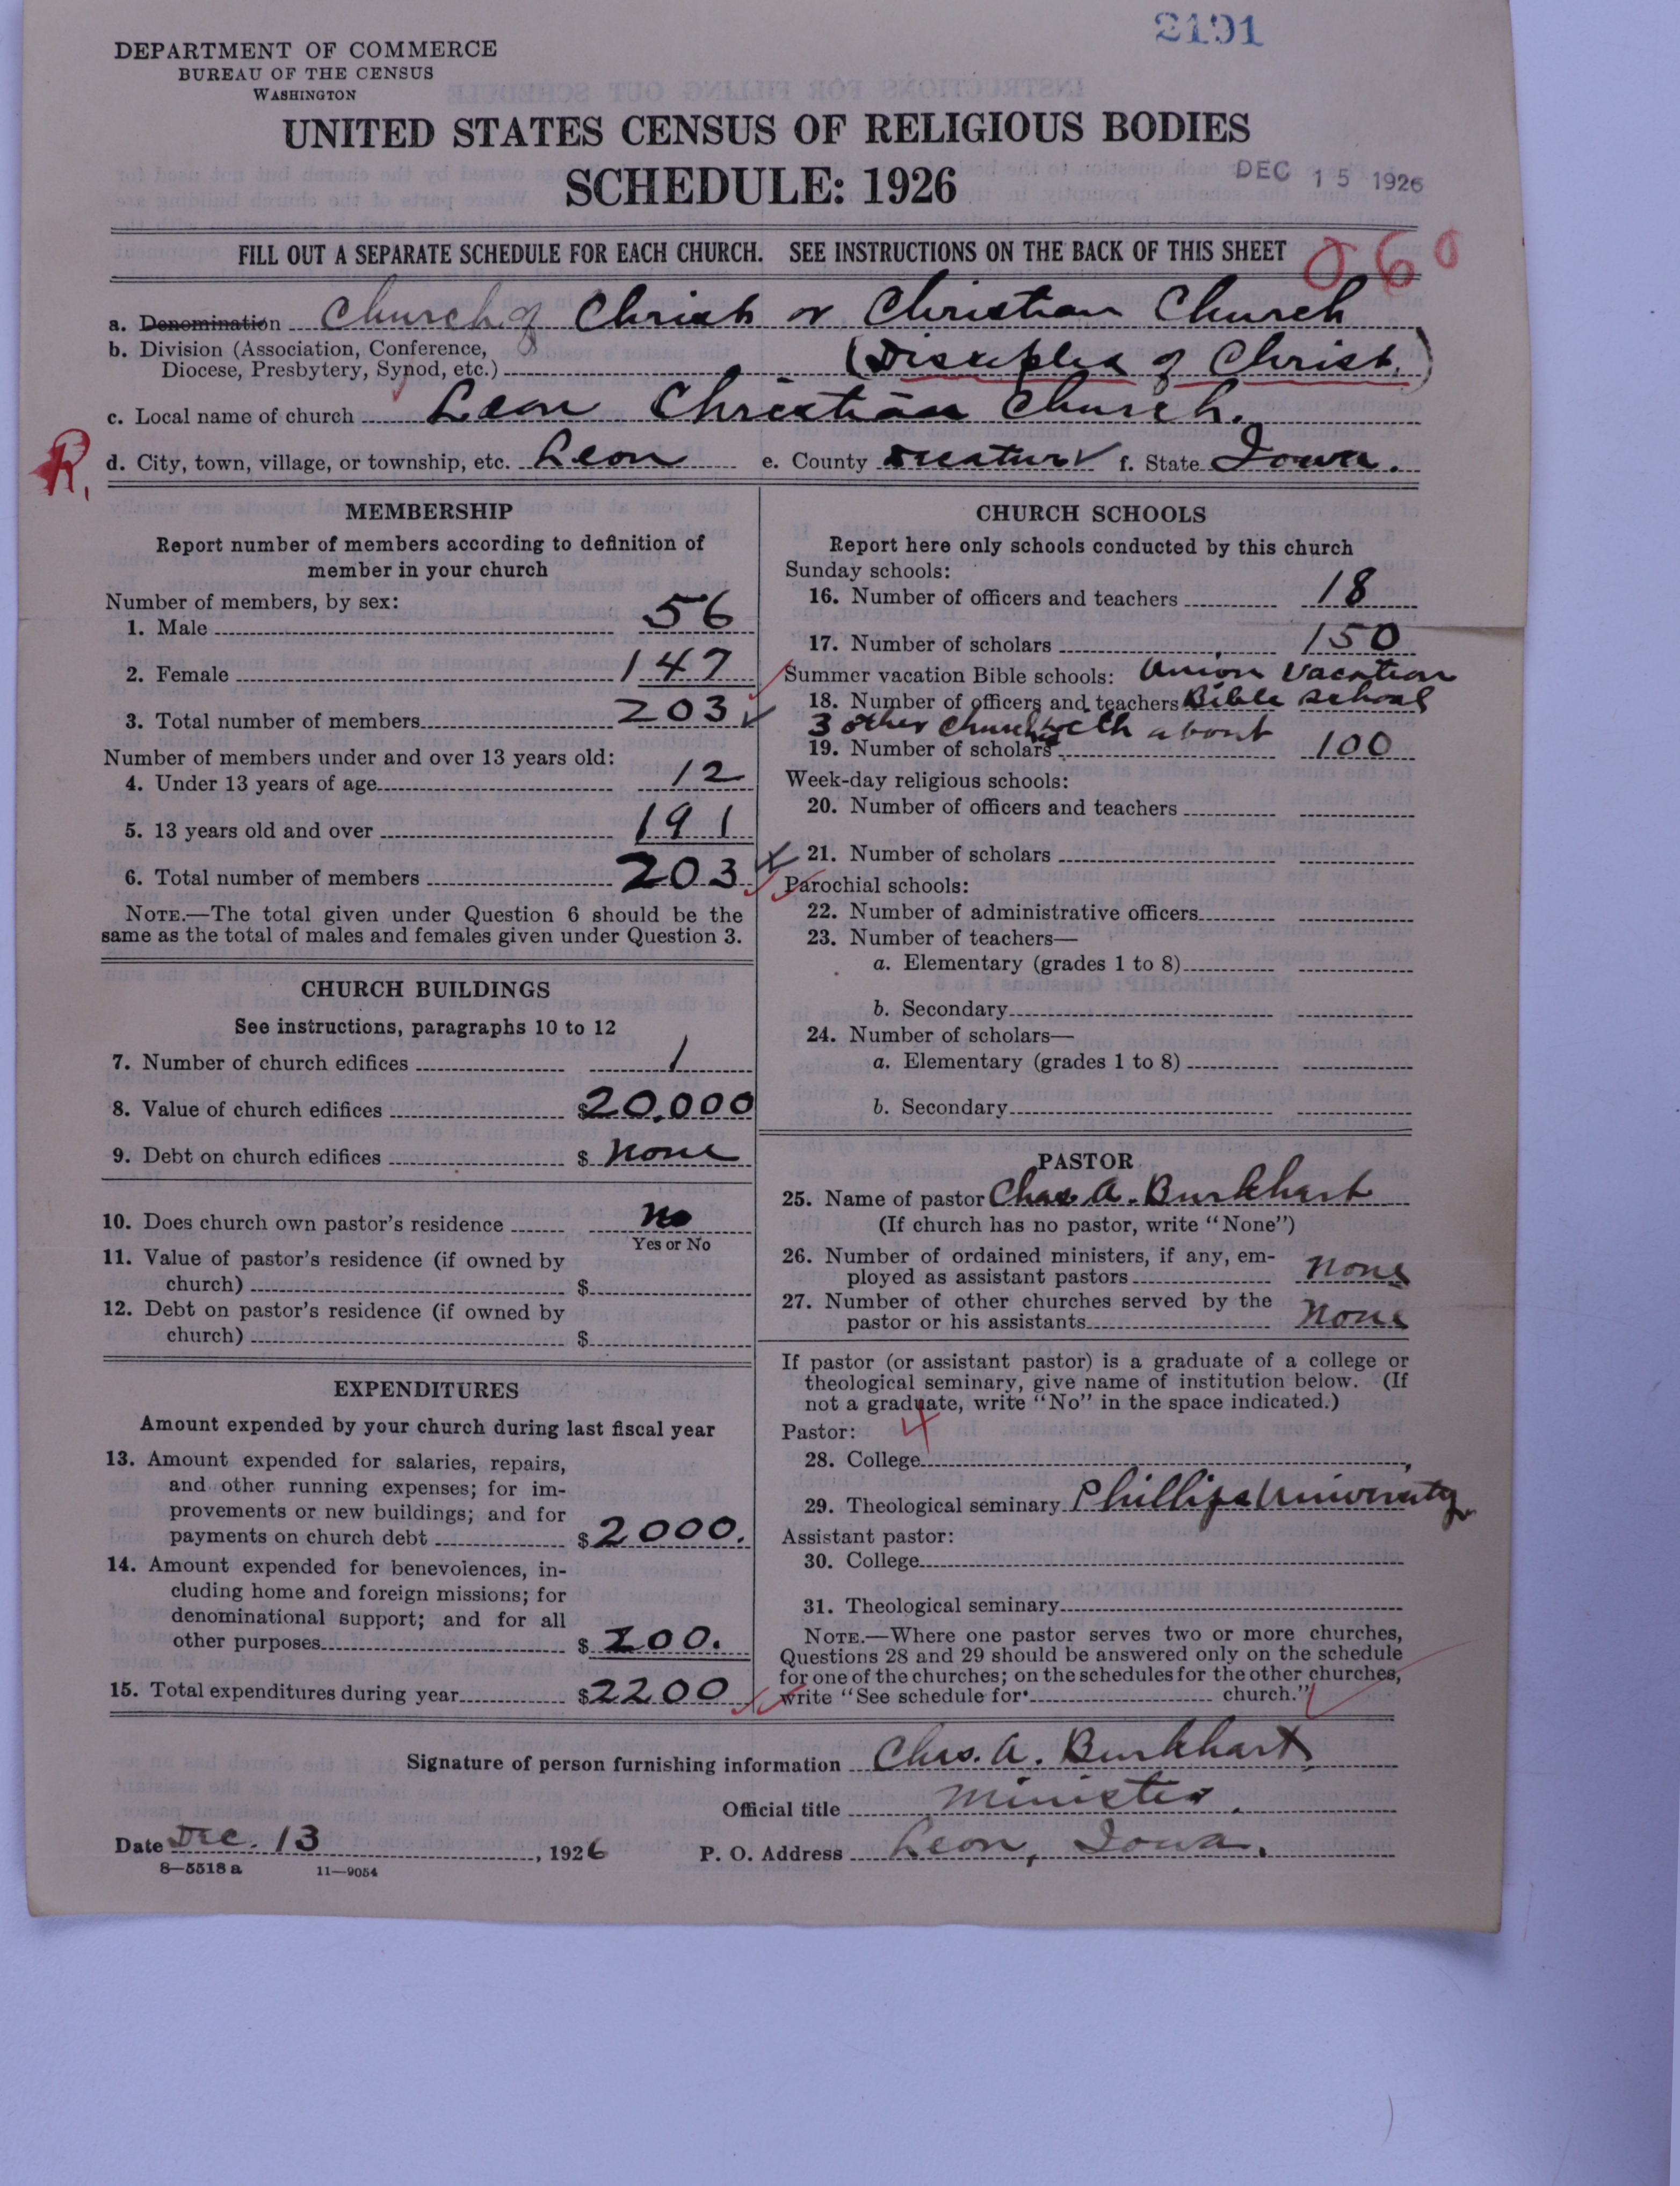 2191
DEPARTMENT OF COMMERCE
BUREAU OF THE CENSUS
WASHINGTON
UNITED STATES CENSUS OF RELIGIOUS BODIES
SCHEDULE: 1926
DEC 15 1926
FILL OUT A SEPARATE SCHEDULE FOR EACH CHURCH. SEE INSTRUCTIONS ON THE BACK OF THIS SHEET
060
a. Denomination Church of Christ or Christian Church
b. Division (Association, Conference,
Diocese, Presbytery, Synod, etc.) (Disciples of Christ.)
c. Local name of church Leon Christian Church.
R.
d. City, town, village, or township, etc. Leon e. County Decatur f. State Iowa.
MEMBERSHIP
Report number of members according to definition of
member in your church
Number of members, by sex:
1. Male 56
2. Female 147
3. Total number of members 203
Number of members under and over 13 years old:
4. Under 13 years of age 12
5. 13 years old and over 191
6. Total number of members 203
NOTE.—The total given under Question 6 should be the
same as the total of males and females given under Question 3.
CHURCH BUILDINGS
See instructions, paragraphs 10 to 12
7. Number of church edifices 1
8. Value of church edifices $20,000
9. Debt on church edifices $ none
10. Does church own pastor's residence no
Yes or No
11. Value of pastor's residence (if owned by
church) $
12. Debt on pastor's residence (if owned by
church) $
EXPENDITURES
Amount expended by your church during last fiscal year
13. Amount expended for salaries, repairs,
and other running expenses; for im-
provements or new buildings; and for
payments on church debt $2000.
14. Amount expended for benevolences, in-
cluding home and foreign missions; for
denominational support; and for all
other purposes $ 200.
15. Total expenditures during year $2200
CHURCH SCHOOLS
Report here only schools conducted by this church
Sunday schools:
16. Number of officers and teachers 18
17. Number of scholars 150
Summer vacation Bible schools: Union Vacation
18. Number of officers and teachers Bible School
3 other churches with about
19. Number of scholars 100
Week-day religious schools:
20. Number of officers and teachers
21. Number of scholars
Parochial schools:
22. Number of administrative officers
23. Number of teachers—
a. Elementary (grades 1 to 8)
b. Secondary
24. Number of scholars—
a. Elementary (grades 1 to 8)
b. Secondary
PASTOR
25. Name of pastor Chas. A. Burkhart
(If church has no pastor, write "None")
26. Number of ordained ministers, if any, em-
ployed as assistant pastors none
27. Number of other churches served by the
pastor or his assistants none
If pastor (or assistant pastor) is a graduate of a college or
theological seminary, give name of institution below. (If
not a graduate, write "No" in the space indicated.)
Pastor: 4
28. College
29. Theological seminary Phillips University
Assistant pastor:
30. College
31. Theological seminary
NOTE.—Where one pastor serves two or more churches,
Questions 28 and 29 should be answered only on the schedule
for one of the churches; on the schedules for the other churches,
write "See schedule for church."
Signature of person furnishing information Chas. A. Burkhart
Official title Minister.
Date Dec. 13, 1926 P. O. Address Leon, Iowa.
8—5518 a 11—9054